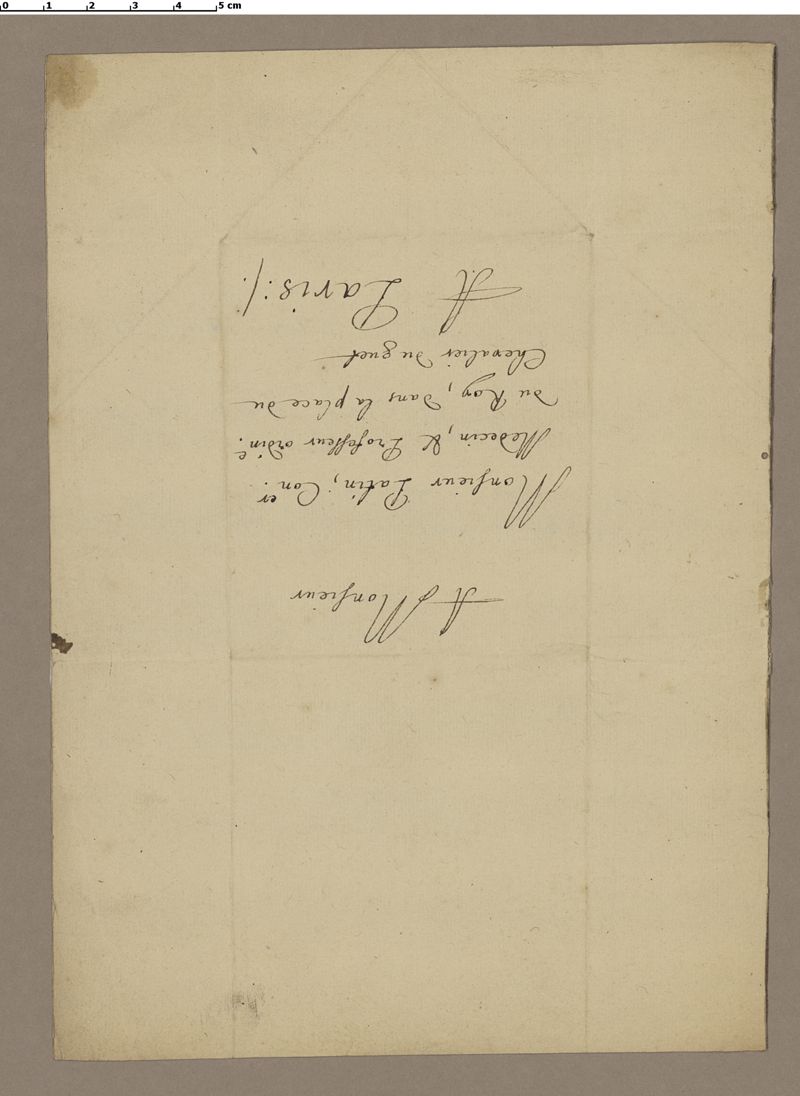 0 1 2 3 4 5 cm
A Monsieur
Monsieur Patin, Con.er
Medecin, & Professeur ordin.e
du Roy, dans la place du
Chevalier du guet
A Paris:/.